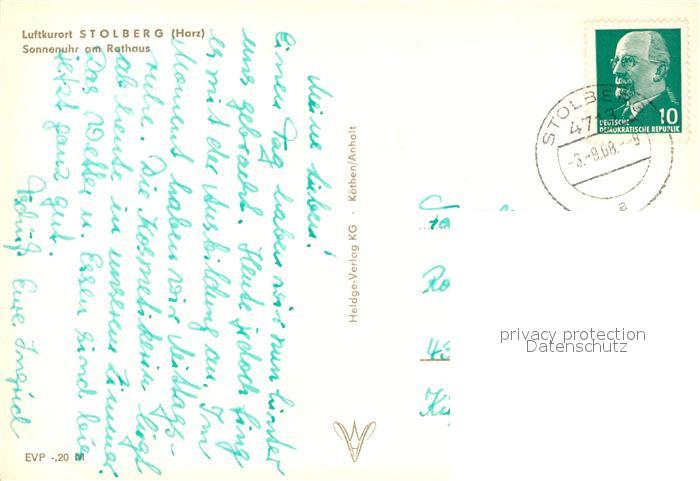 Luftkurort STOLBERG (Harz)
Sonnenuhr am Rathaus
Meine Lieben!
Einen Tag haben wir nun hinter
uns gebracht. Heute jedoch fing
es mit der Ausbildung an. Im
Moment haben wir Mittags-
ruhe. Die Kosmetikerin liegt
ab heute in unserem Zimmer.
Das Wetter u. Essen sind hier
jetzt ganz gut.
Tschüß Eure Ingrid
EVP -,20 M
Heldge-Verlag KG · Köthen/Anhalt
STOLBERG
4713
a
10
DEUTSCHE
DEMOKRATISCHE REPUBLIK
Fa
Ro
privacy protection
Datenschutz